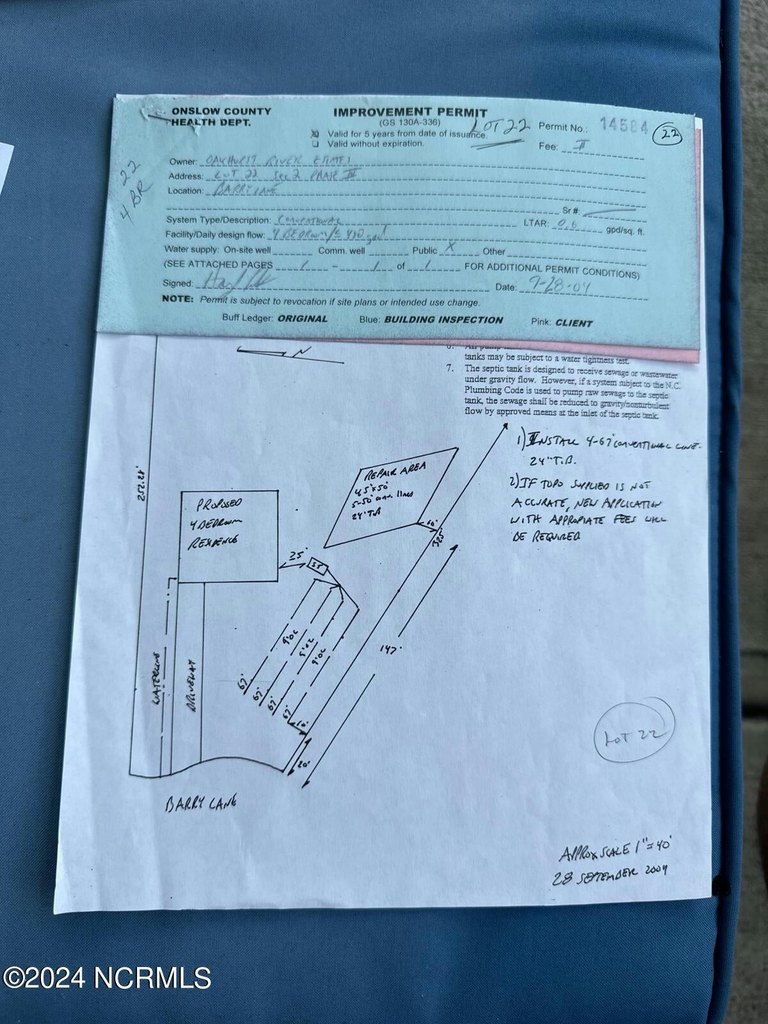 ONSLOW COUNTY
HEALTH DEPT.
IMPROVEMENT PERMIT
(GS 130A-336)
Valid for 5 years from date of issuance.
Valid without expiration.
LOT 22
Permit No.: 14584
22
Fee:
22
4 BR
Owner: OAKHURST RIVER ESTATES
Address: LOT 22 SEC 2 PHASE III
Location: BARRY LANE
Sr #:
System Type/Description: CONVENTIONAL
LTAR: 0.6 gpd/sq. ft.
Facility/Daily design flow: 4 BEDROOM/
Water supply: On-site well Comm. well Public X Other
(SEE ATTACHED PAGES 1 - 1 of 1 FOR ADDITIONAL PERMIT CONDITIONS)
Signed:
Date: 9-28-04
NOTE: Permit is subject to revocation if site plans or intended use change.
Buff Ledger: ORIGINAL Blue: BUILDING INSPECTION Pink: CLIENT
N
tanks may be subject to a water tightness test.
7. The septic tank is designed to receive sewage or wastewater
under gravity flow. However, if a system subject to the N.C.
Plumbing Code is used to pump raw sewage to the septic
tank, the sewage shall be reduced to gravity/nonturbulent
flow by approved means at the inlet of the septic tank.
1) INSTALL 4-67' CONVENTIONAL LINE
24" T.B.
2) IF TOPO SUPPLIED IS NOT
ACCURATE, NEW APPLICATION
WITH APPROPIATE FEES WILL
BE REQUIRED
252.28'
REPAIR AREA
45'x50'
5-50' CONV. LINES
24" T.B
PROPOSED
4 BEDROOM
RESIDENCE
10'
25'
ST
9'OC
9'OC
9'OC
147'
WATERLINE
DRIVEWAY
67'
67'
67'
67'
10'
20'
BARRY LANE
LOT 22
APPROX SCALE 1"=40'
28 SEPTEMBER 2004
©2024 NCRMLS